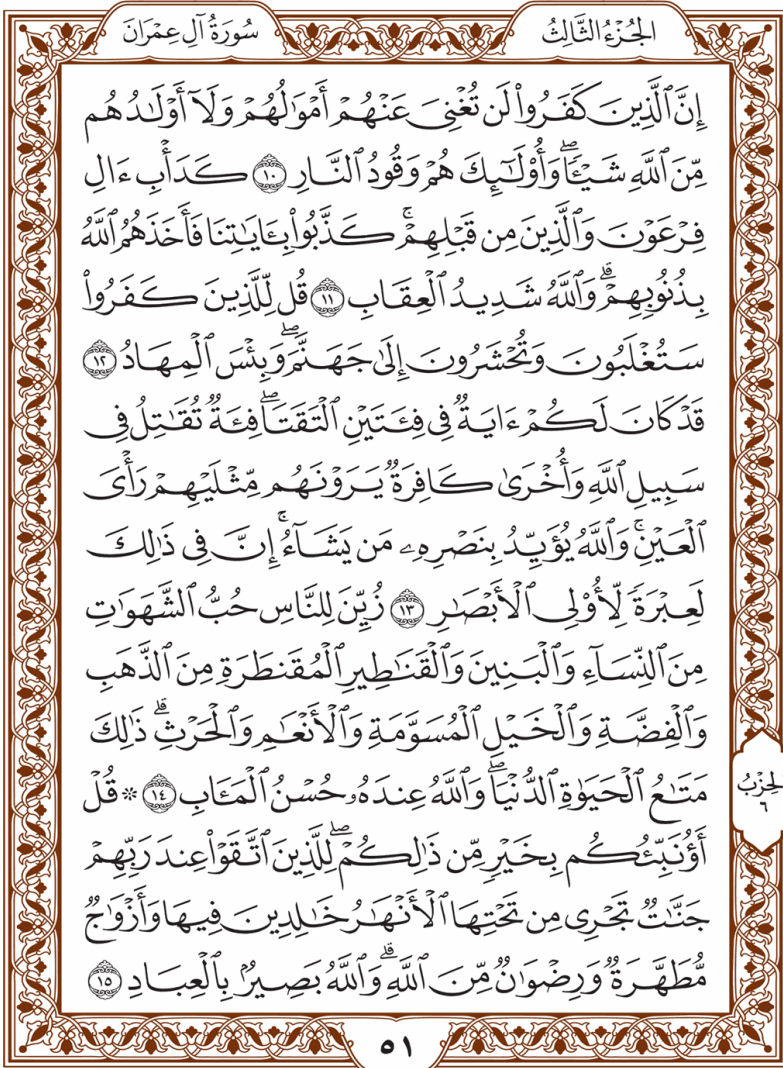 الجُزْءُ الثَّالِثُ
سُورَةُ آلِ عِمْرَانَ
إِنَّ ٱلَّذِينَ كَفَرُواْ لَن تُغْنِيَ عَنْهُمْ أَمْوَٰلُهُمْ وَلَآ أَوْلَٰدُهُم
مِّنَ ٱللَّهِ شَيْـًٔاۖ وَأُوْلَٰٓئِكَ هُمْ وَقُودُ ٱلنَّارِ ١٠ كَدَأْبِ ءَالِ
فِرْعَوْنَ وَٱلَّذِينَ مِن قَبْلِهِمْۚ كَذَّبُواْ بِـَٔايَٰتِنَا فَأَخَذَهُمُ ٱللَّهُ
بِذُنُوبِهِمْۗ وَٱللَّهُ شَدِيدُ ٱلْعِقَابِ ١١ قُل لِّلَّذِينَ كَفَرُواْ
سَتُغْلَبُونَ وَتُحْشَرُونَ إِلَىٰ جَهَنَّمَۖ وَبِئْسَ ٱلْمِهَادُ ١٢
قَدْ كَانَ لَكُمْ ءَايَةٌ فِي فِئَتَيْنِ ٱلْتَقَتَاۖ فِئَةٌ تُقَٰتِلُ فِي
سَبِيلِ ٱللَّهِ وَأُخْرَىٰ كَافِرَةٌ يَرَوْنَهُم مِّثْلَيْهِمْ رَأْيَ
ٱلْعَيْنِۚ وَٱللَّهُ يُؤَيِّدُ بِنَصْرِهِۦ مَن يَشَآءُۚ إِنَّ فِي ذَٰلِكَ
لَعِبْرَةً لِّأُوْلِي ٱلْأَبْصَٰرِ ١٣ زُيِّنَ لِلنَّاسِ حُبُّ ٱلشَّهَوَٰتِ
مِنَ ٱلنِّسَآءِ وَٱلْبَنِينَ وَٱلْقَنَٰطِيرِ ٱلْمُقَنطَرَةِ مِنَ ٱلذَّهَبِ
وَٱلْفِضَّةِ وَٱلْخَيْلِ ٱلْمُسَوَّمَةِ وَٱلْأَنْعَٰمِ وَٱلْحَرْثِۗ ذَٰلِكَ
مَتَٰعُ ٱلْحَيَوٰةِ ٱلدُّنْيَاۖ وَٱللَّهُ عِندَهُۥ حُسْنُ ٱلْمَـَٔابِ ١٤ ۞ قُلْ
أَؤُنَبِّئُكُم بِخَيْرٍ مِّن ذَٰلِكُمْۖ لِلَّذِينَ ٱتَّقَوْاْ عِندَ رَبِّهِمْ
جَنَّٰتٌ تَجْرِي مِن تَحْتِهَا ٱلْأَنْهَٰرُ خَٰلِدِينَ فِيهَا وَأَزْوَٰجٌ
مُّطَهَّرَةٌ وَرِضْوَٰنٌ مِّنَ ٱللَّهِۗ وَٱللَّهُ بَصِيرٌۢ بِٱلْعِبَادِ ١٥
الحِزْبُ
٦
٥١